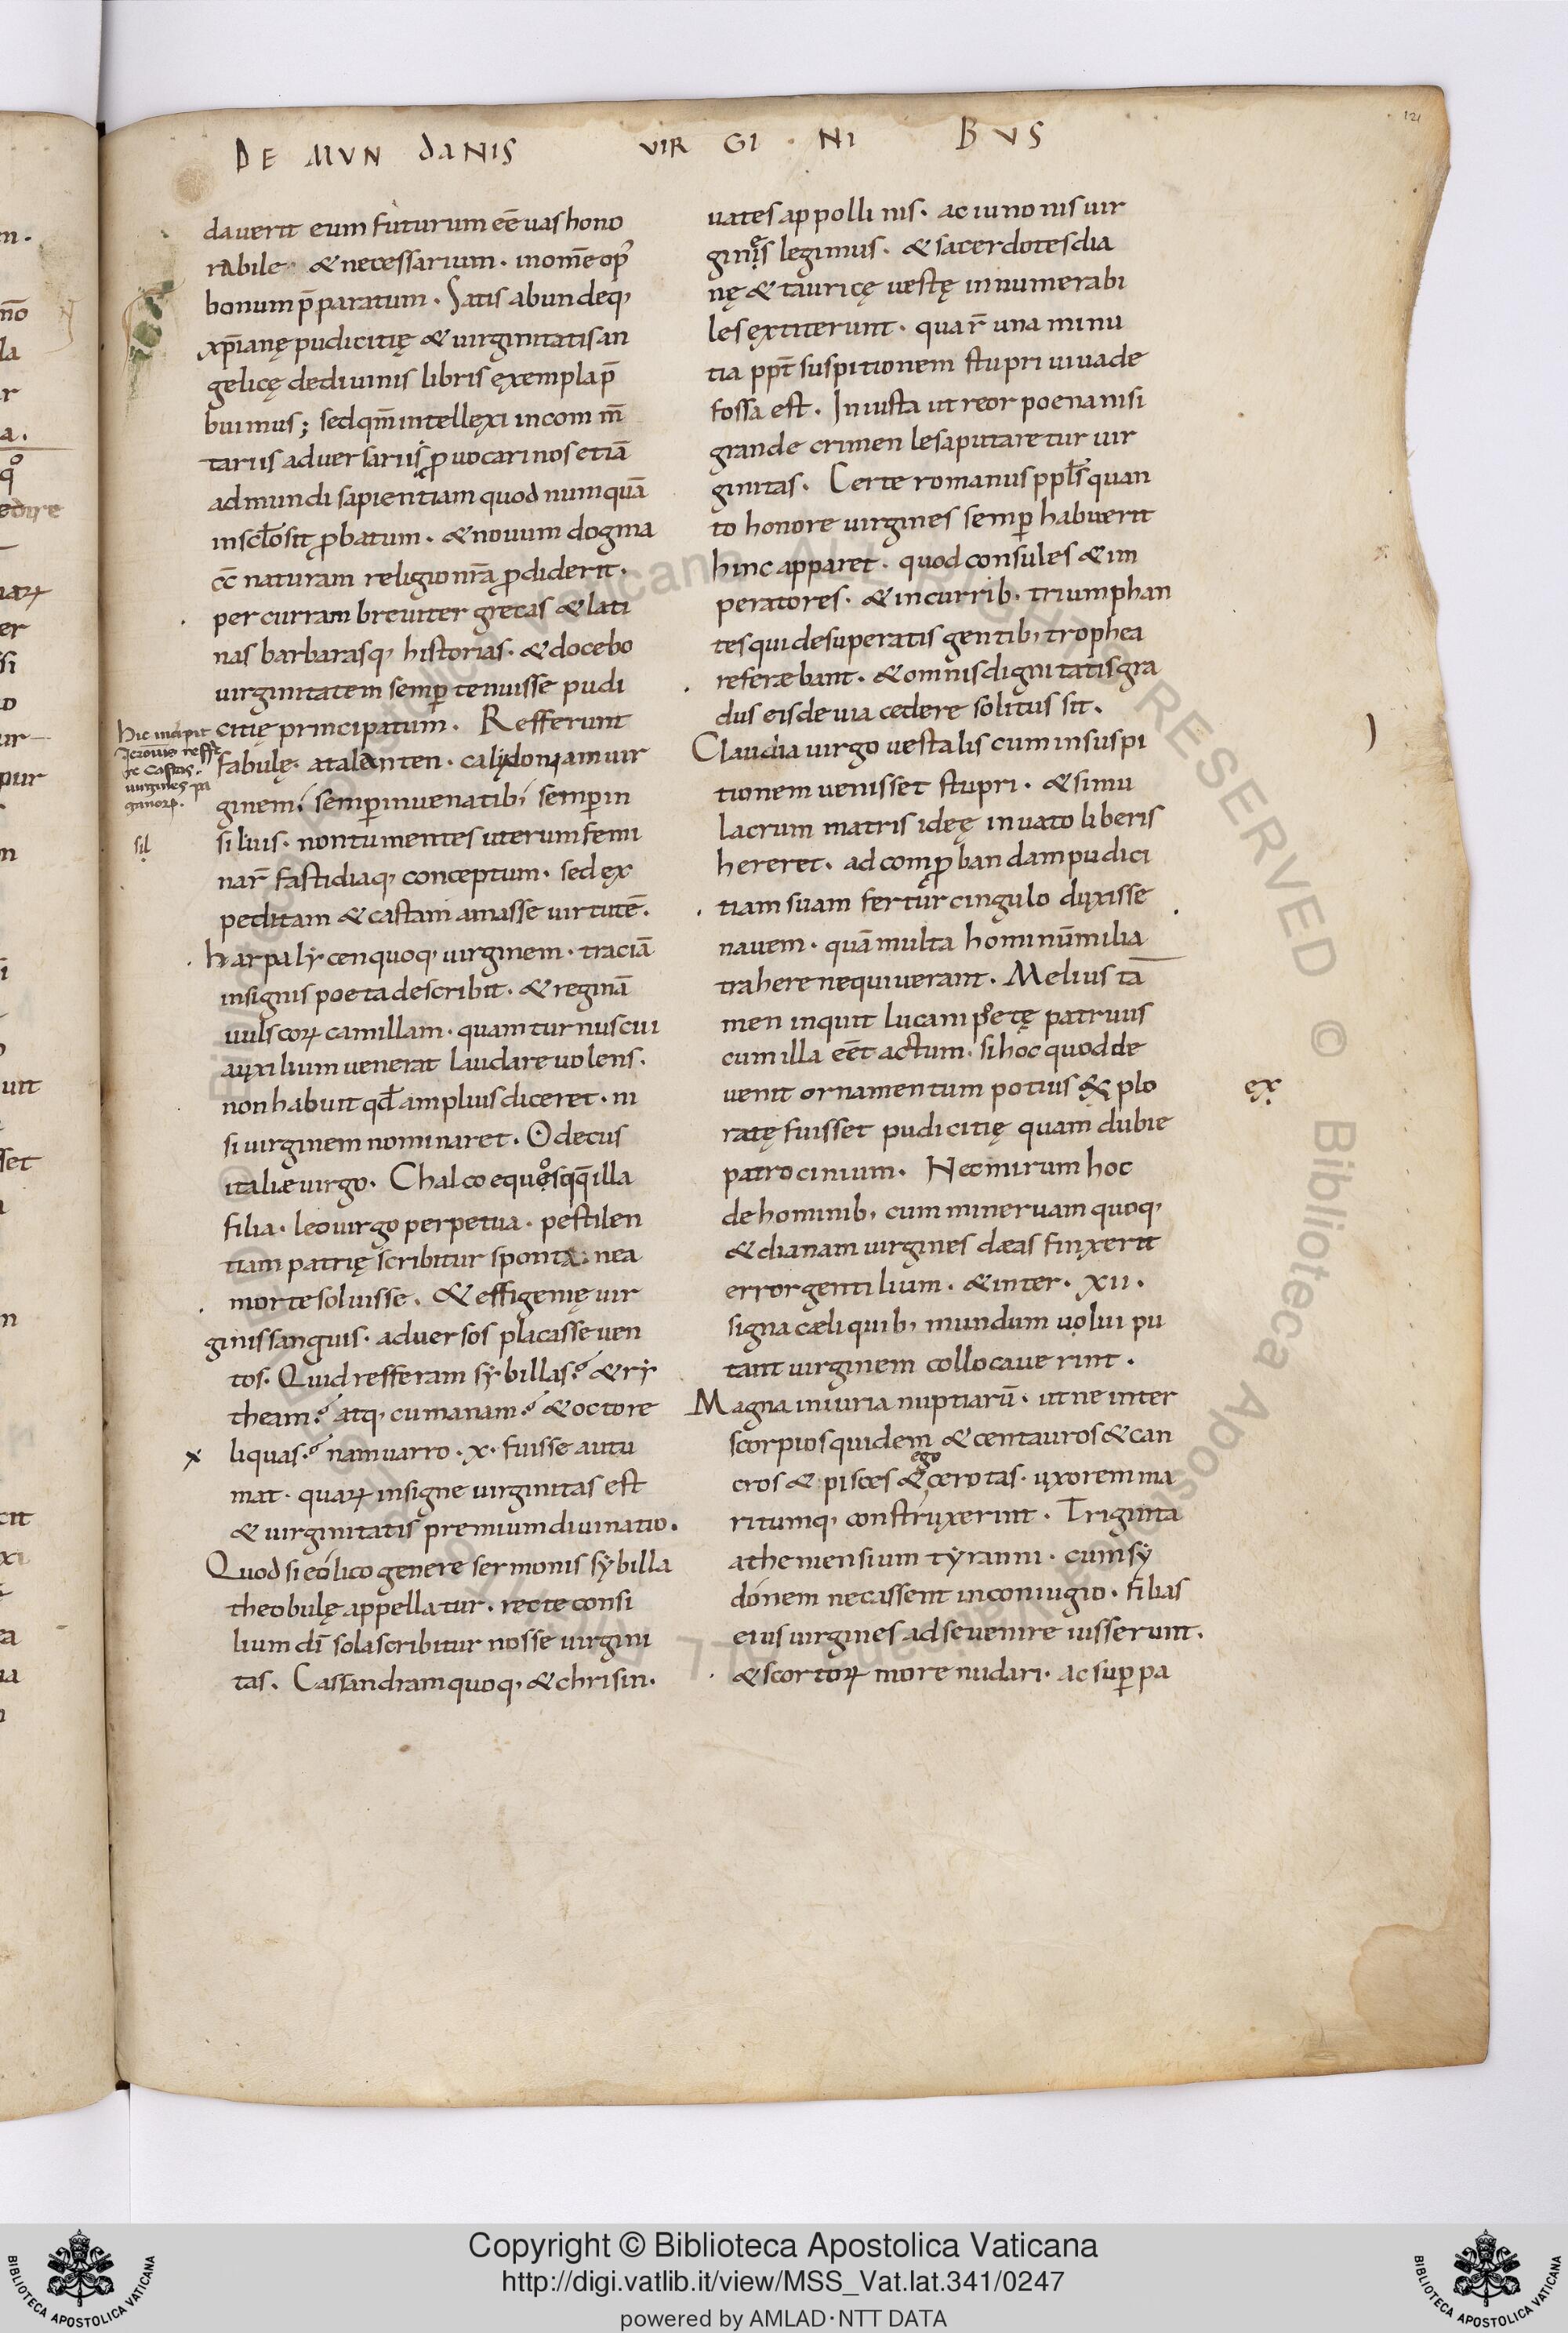 DE MVN DANIS VIR GI · NI BVS
121
dauerit eum futurum eē uas hono
rabile · & necessarium · inom̄e op̄
bonum p̄paratum · Satis abundeq,
xp̄ianę pudicitię & uirginitatis an
gelicę de diuinis libris ęxempla p̄
buimus; sed qm̄ intellęxi incom m̄
tariis aduersarii ꝓuocari nos etiā
ad mundi sapientiam quod numquā
insc̄lo sit ꝓbatum · & nouum dogma
cc̄ naturam religio nr̄a ꝓdiderit ·
percurram breuiter grecas & lati
nas barbarasq, historias · & docebo
uirginitatem semꝑ tenuisse pudi
citię principatum · Refferunt
fabulę · atalanten · calydoniam uir
ginem semꝑ inuenatib, semꝑ in
siluis · non tumentes uterum femi
nar̄ fastidiaq, conceptum · sed ex
peditam & castam amasse uirtutē ·
harpalycen quoq, uirginem · traciā
insignis poeta describit · & reginā
uulscoꝝ camillam · quam turnus cui
auxilium uenerat laudare uolens ·
non habuit qd̄ amplius diceret · ni
si uirginem nominaret · O decus
italiæ uirgo · Chalcoequosqq̄ illa
filia · leo uirgo perpetua · pestilen
tiam patrię scribitur sponta nea
morte soluisse · & effigenię uir
ginis sanguis · aduersos placasse uen
tos · Quid refferam sybillas? & ry
theam? atq, cumanam? & octo re
liquas? nam uarro · x · fuisse autu
mat · quaꝝ insigne uirginitas est
& uirginitatis premium diuinatio ·
Quod si eolico genere sermonis sybilla
theobulę appellatur · recte consi
lium dī sola scribitur nosse uirgini
tas · Cassandram quoq, & chrisin ·
Hic incipit
uirgines pa
ganoꝝ.
sil
x
uates appollinis · ac iunonis uir
ginęs legimus · & sacerdotes dia
nę & tauricę uestę innumerabi
les ęxtiterunt · quar̄ una minu
tia ppt̄ suspitionem stupri uiua de
fossa est · Iniusta ut reor poena nisi
grande crimen lesa putaretur uir
ginitas · Certe romanus ppl̄s quan
to honore uirgines semꝑ habuerit
hinc apparet · quod consules & im
peratores · & in currib · triumphan
tes qui de superatis gentib, trophea
referæbant · & omnis dignitatis gra
dus eis de uia cedere solitus sit ·
Claudia uirgo uestalis cum in suspi
tionem uenisset stupri · & simu
lacrum matris ideę in uato liberis
hereret · ad comꝓbandam pudici
tiam suam fertur cingulo duxisse
nauem · quā multa hominū milia
trahere nequiuerant · Melius tā
men inquit lucani poetę patruus
cum illa eēt actum · si hoc quod de
uenit ornamentum potius & plo
ratę fuisset pudicitię quam dubie
patrocinium · Nec mirum hoc
de hominib, cum mineruam quoq,
& dianam uirgines dæas finxerit
error gentilium · & inter · XII ·
signa cæli quib, mundum uolui pu
tant uirginem collocauerint ·
Magna iniuria nuptiarū · ut ne inter
scorpios quidem & centauros & can
cros & pisces & ego cerotas · uxorem ma
ritumq, construxerint · Triginta
atheniensium tyranni · cum sy
donem necassent in coniugio · filias
eius uirgines ad se uenire iusserunt ·
& scortoꝝ more nudari · ac suꝑ pa
ex
Copyright © Biblioteca Apostolica Vaticana
http://digi.vatlib.it/view/MSS_Vat.lat.341/0247
powered by AMLAD·NTT DATA
BIBLIOTECA APOSTOLICA VATICANA
BIBLIOTECA APOSTOLICA VATICANA